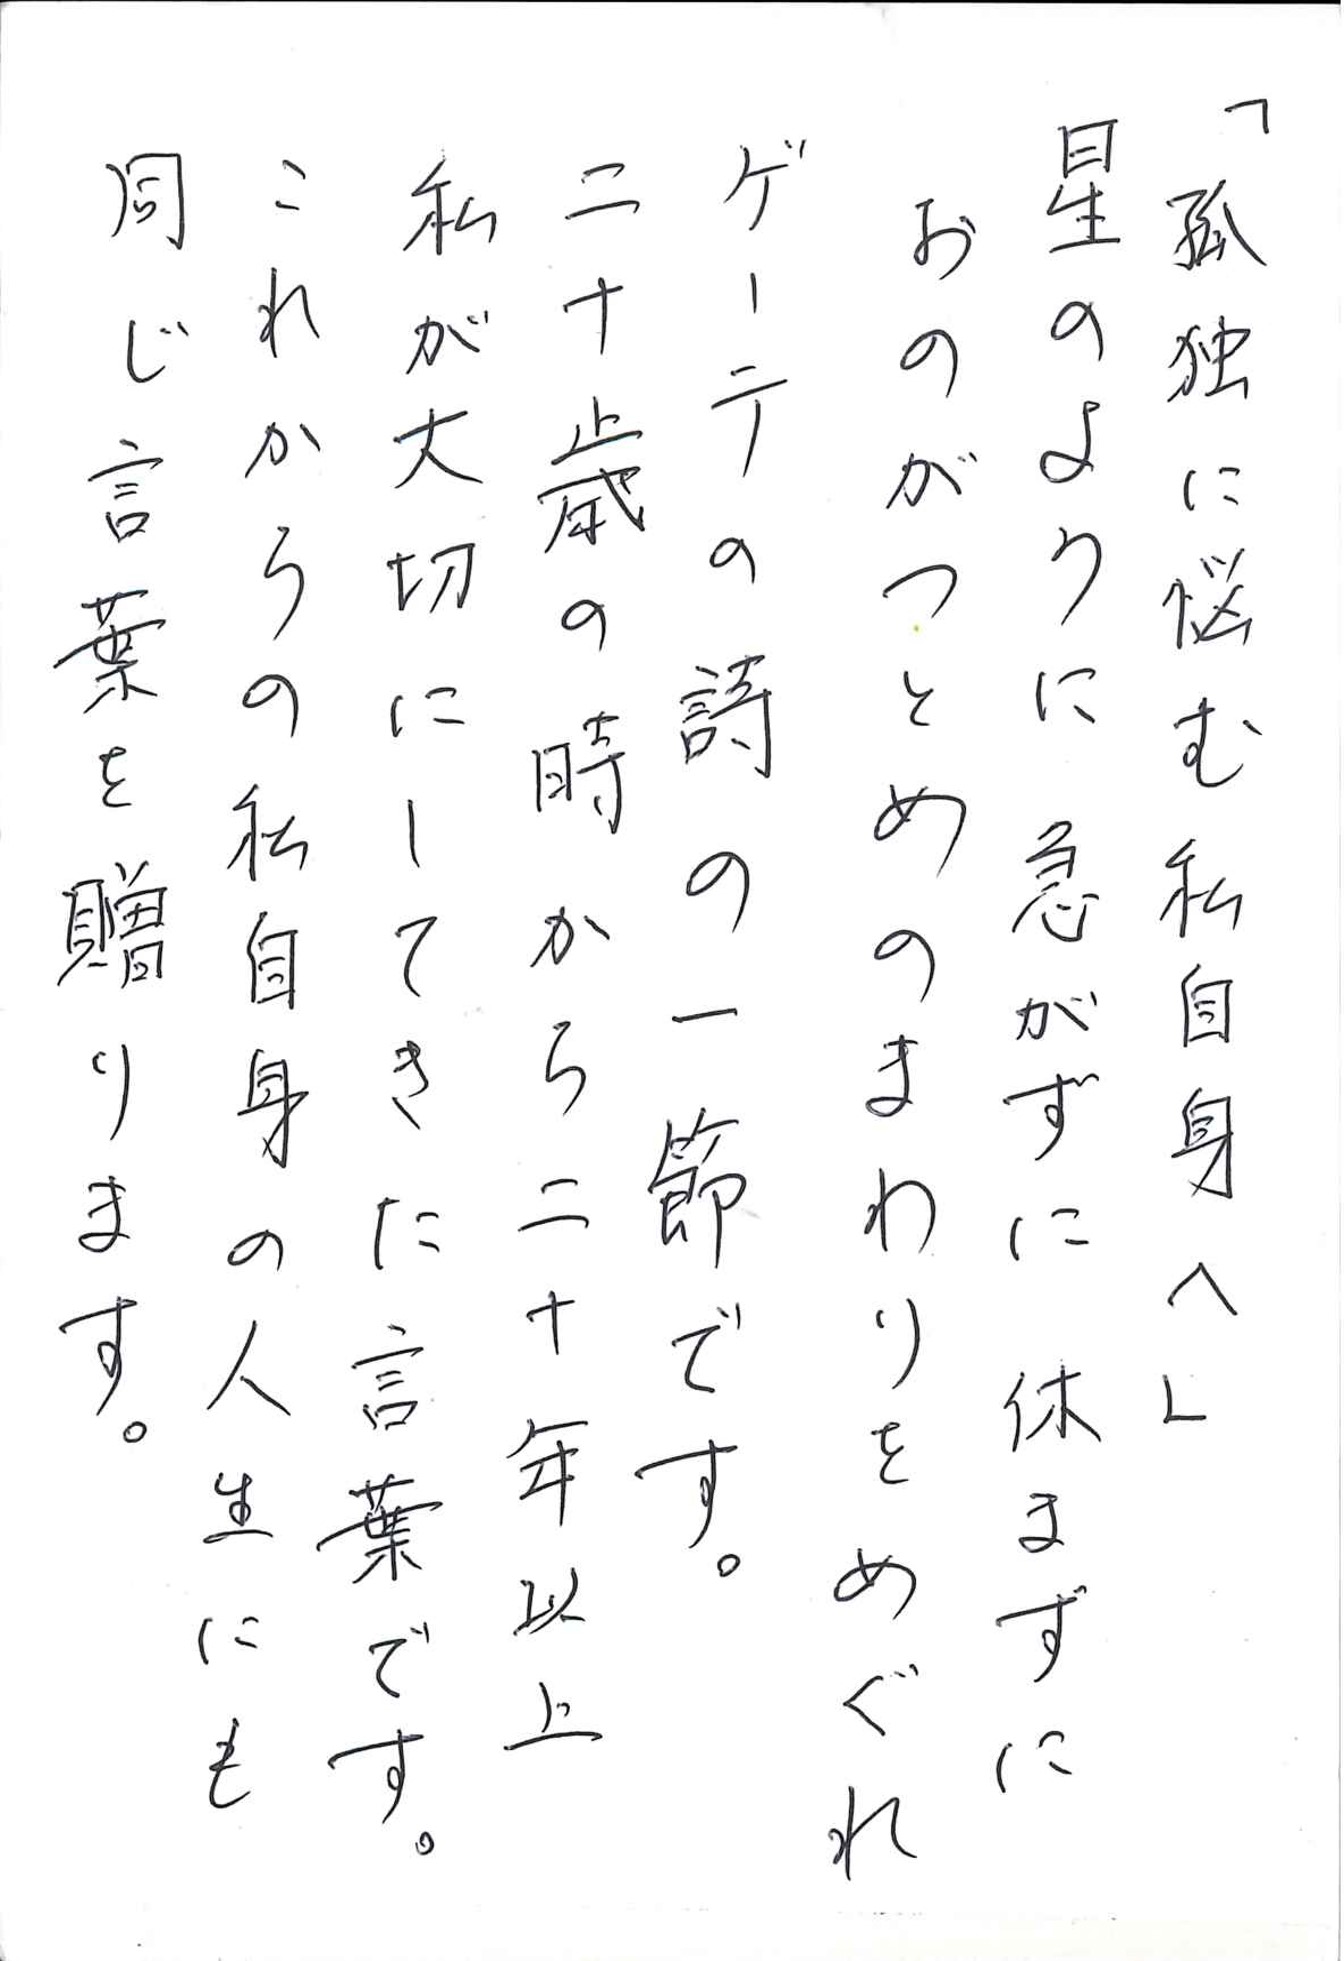 「孤独に悩む私自身へ」
星のように 急がずに 休まずに
おのがつとめのまわりを めぐれ
ゲーテの詩の一節です。
二十歳の時から二十年以上
私が大切にしてきた言葉です。
これからの私自身の人生にも
同じ言葉を贈ります。